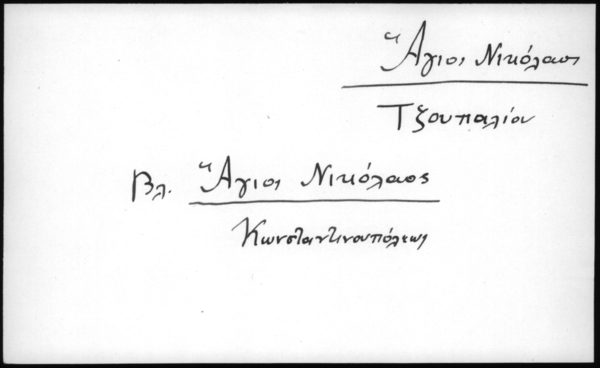 Ἅγιος Νικόλαος
Τζουπαλίου
Βλ. Ἅγιος Νικόλαος
Κωνσταντινουπόλεως